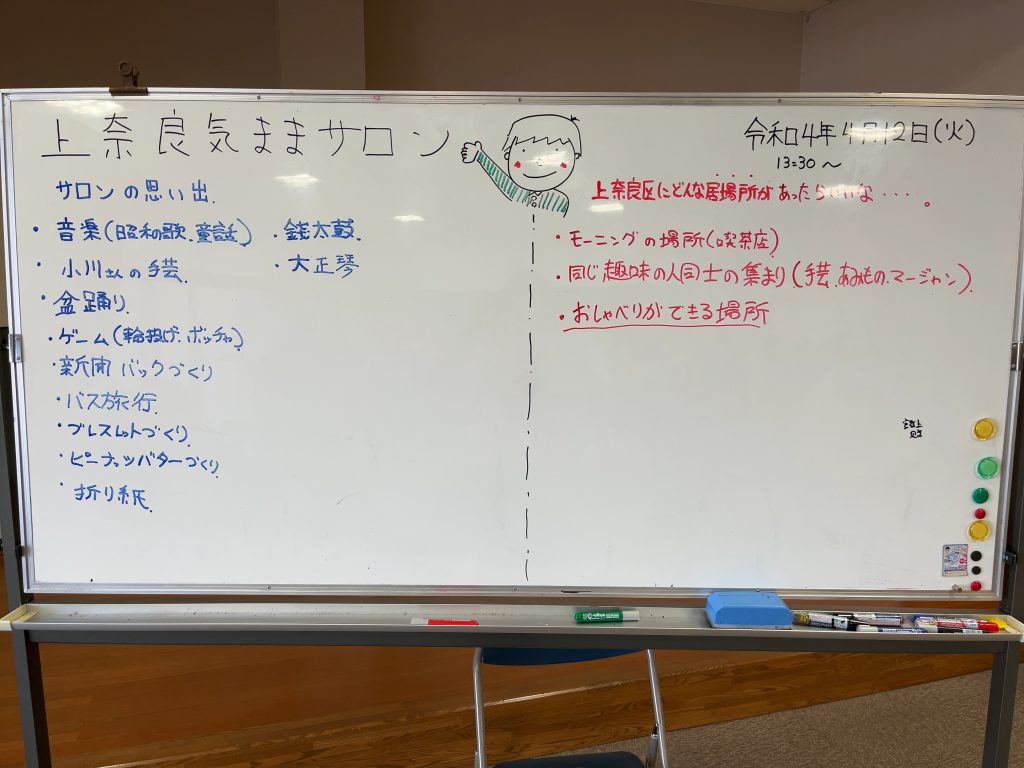 上奈良気ままサロン
令和4年4月12日(火)
13:30～
サロンの思い出.
・音楽(昭和の歌.童話)
・銭太鼓.
・小川さんの手芸.
・大正琴
・盆踊り.
・ゲーム(輪投げ.ボッチャ)
・新聞バックづくり
・バス旅行.
・ブレスレットづくり.
・ピーナッツバターづくり.
・折り紙.
上奈良区にどんな居場所があったらいいな・・・・。
・モーニングの場所(喫茶店)
・同じ趣味の人同士の集まり(手芸.あみもの.マージャン).
・おしゃべりができる場所